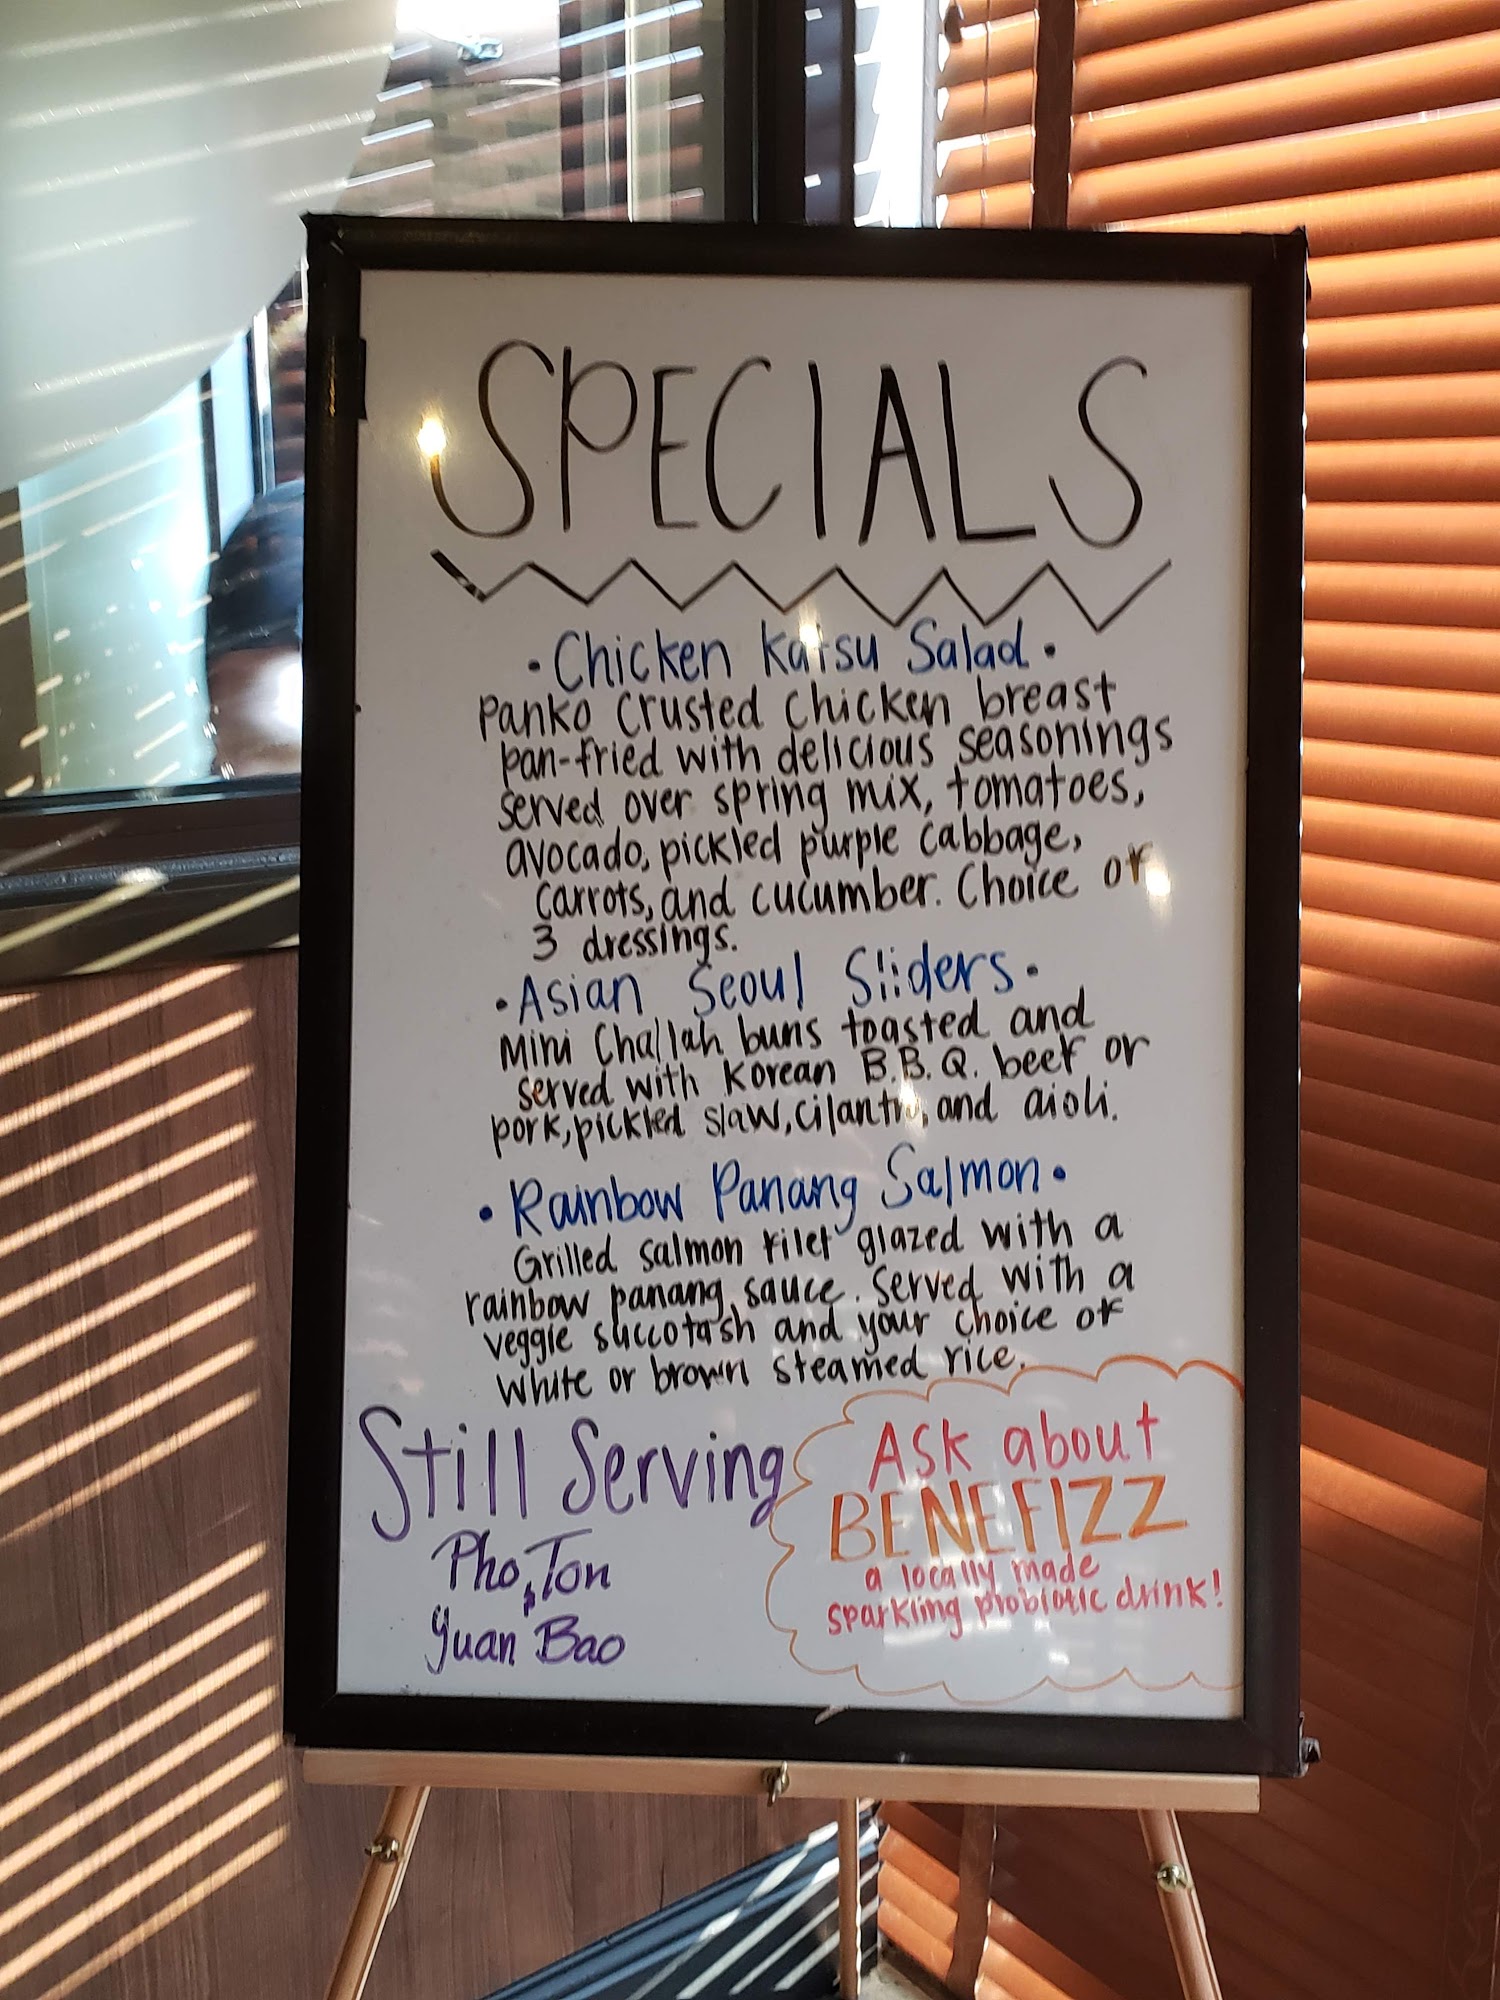 SPECIALS
• Chicken Katsu Salad •
Panko crusted chicken breast
pan-fried with delicious seasonings
served over spring mix, tomatoes,
avocado, pickled purple cabbage,
carrots, and cucumber. Choice of
3 dressings.
• Asian Seoul Sliders •
Mini Challah buns toasted and
served with Korean B.B.Q. beef or
pork, pickled slaw, cilantro, and aioli.
• Rainbow Panang Salmon •
Grilled salmon filet glazed with a
rainbow panang sauce. Served with a
veggie succotash and your choice of
white or brown steamed rice.
Still Serving
Pho, Ton
& Yuan Bao
Ask about
BENEFIZZ
a locally made
sparkling probiotic drink!